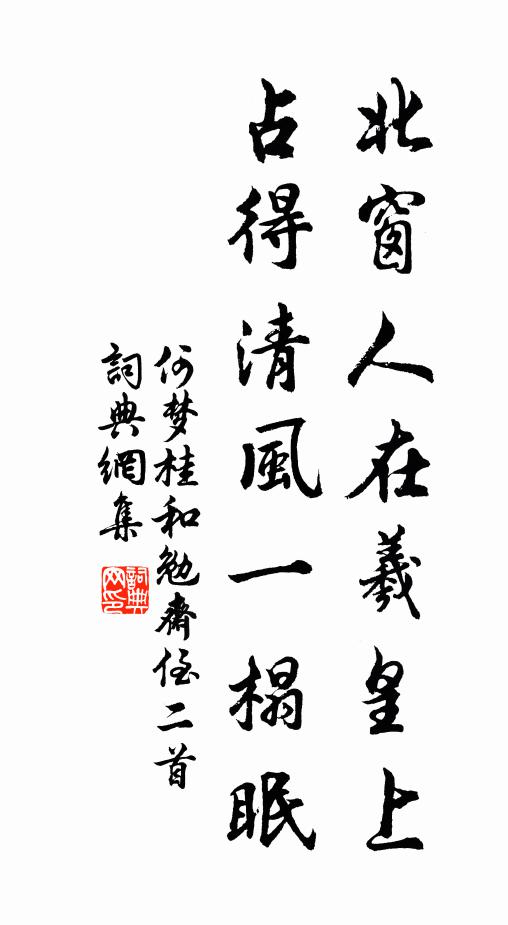 北窗人在羲皇上
占得清風一榻眠
何梦桂和勉齋侄二首
詞典網集
詞典网印